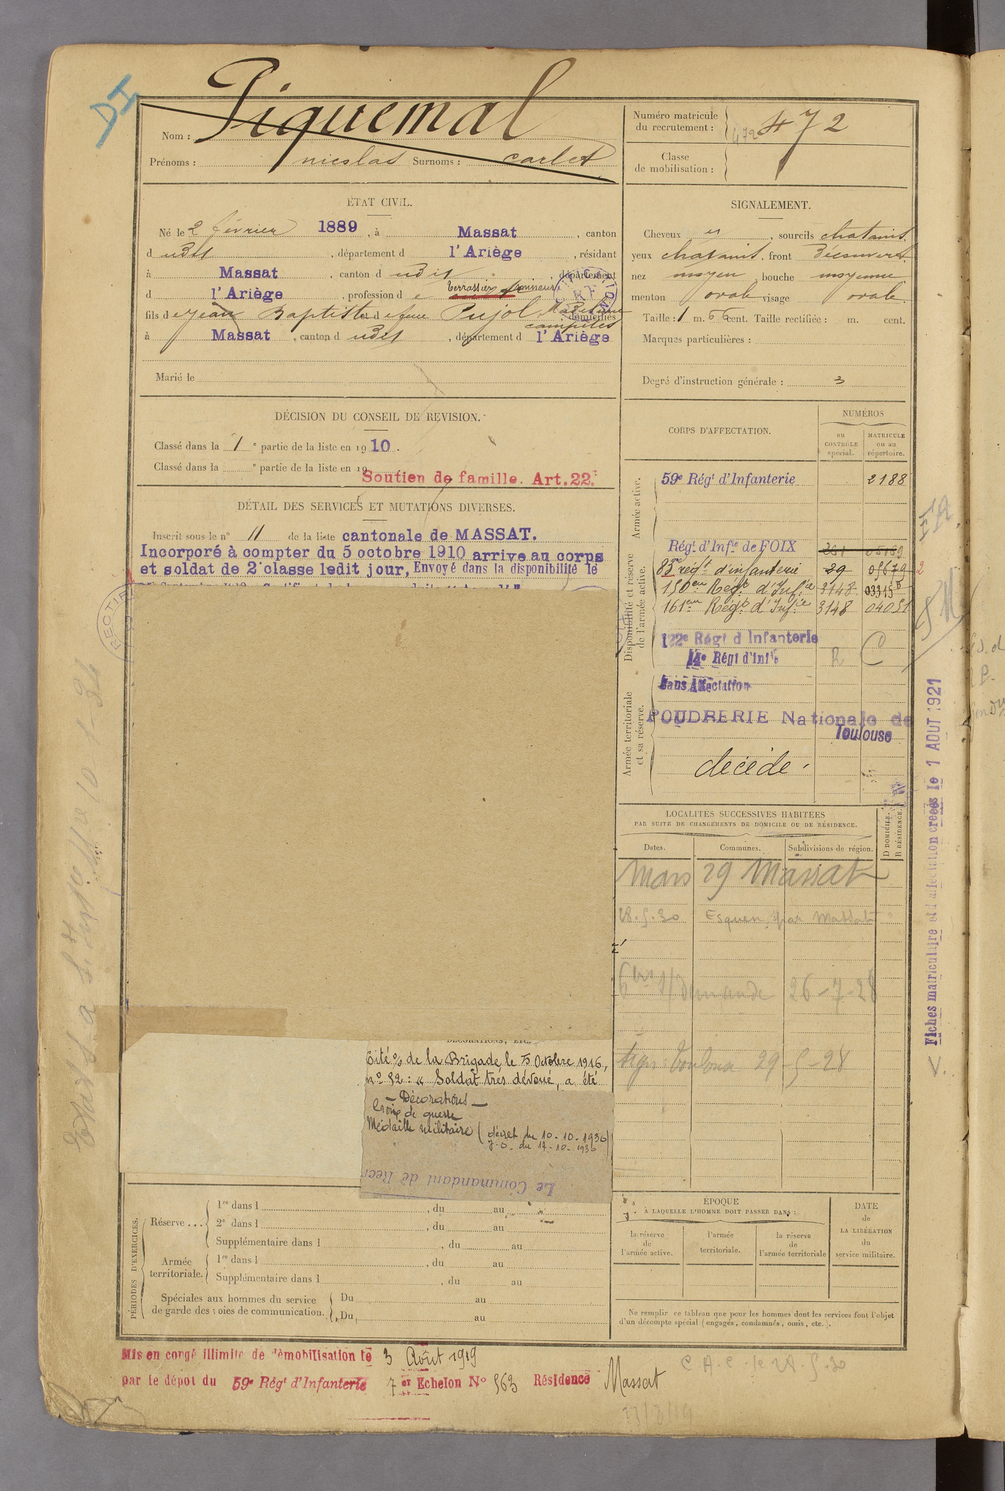 DI
Nom : Piquemal
Prénoms : nicolas Surnoms : carlet
Numéro matricule
du recrutement : 472 472
Classe
de mobilisation :
ÉTAT CIVIL.
Né le 2 février 1889, à Massat, canton
d udit, département d l'Ariège, résidant
à Massat, canton d udit, département
d l'Ariège, profession d e terrassier
fils d e Jean Baptiste et d e feue Pujol domiciliés
à Massat, canton d udit, département d l'Ariège
Marié le
SIGNALEMENT.
Cheveux et, sourcils chatains
yeux chatains, front Découvert
nez moyen, bouche moyenne
menton ovale visage ovale.
Taille : 1 m. 66 cent. Taille rectifiée : m. cent.
Marques particulières :
Degré d'instruction générale : 3
DÉCISION DU CONSEIL DE REVISION.
Classé dans la 1 e partie de la liste en 1910.
Classé dans la e partie de la liste en 19
Soutien de famille. Art. 22.
DÉTAIL DES SERVICES ET MUTATIONS DIVERSES.
Inscrit sous le n° 11 de la liste cantonale de MASSAT.
Incorporé à compter du 5 octobre 1910 arrive au corps
et soldat de 2e classe ledit jour, Envoyé dans la disponibilité le
CORPS D'AFFECTATION.
NUMÉROS
au
CONTRÔLE
spécial.
MATRICULE
ou au
répertoire.
Armée active.
59e Régt d'Infanterie 2188
Disponibilité et réserve
de l'armée active.
Régt d'Infie de FOIX
83e régt d'infanterie 29 05679
150eme Regt d'Infie 3148 03315
161eme Regt d'Infie 3148 04051
122e Régt d'Infanterie
14e Régt d'Infie R C
Sans Affectation
Armée territoriale
et sa réserve.
POUDRERIE Nationale de
Toulouse
décédé.
LOCALITÉS SUCCESSIVES HABITÉES
PAR SUITE DE CHANGEMENTS DE DOMICILE OU DE RÉSIDENCE.
Dates. Communes. Subdivisions de région.
D DOMICILE.
R RÉSIDENCE.
Mars 29 Massat
28.5.30 par Massat
Demande 26-7-28
29-5-28
Fiches matriculaire et d'affectation créées le 1 AOUT 1921
DÉCORATIONS, ETC.
Cité % de la Brigade, le 5 Octobre 1916,
n° 52 : « Soldat très dévoué, a été
— Décorations —
Croix de guerre
Médaille militaire (décret du 10-10-1936)
J.O. du 14-10-1936
Le Commandant de Recr
PÉRIODES D'EXERCICES.
Réserve...
1re dans l , du au
2e dans l , du au
Supplémentaire dans l , du au
Armée
territoriale.
1re dans l , du au
Supplémentaire dans l , du au
Spéciales aux hommes du service
de garde des voies de communication.
Du au
Du au
ÉPOQUE
À LAQUELLE L'HOMME DOIT PASSER DANS :
la réserve
de
l'armée active.
l'armée
territoriale.
la réserve
de
l'armée territoriale
DATE
de
LA LIBÉRATION
du
service militaire.
Ne remplir ce tableau que pour les hommes dont les services font l'objet
d'un décompte spécial (engagés, condamnés, omis, etc.).
Mis en congé illimité de démobilisation le 3 Août 1919
par le dépôt du 59e Régt d'Infanterie 7e Echelon N° 563 Résidence Massat